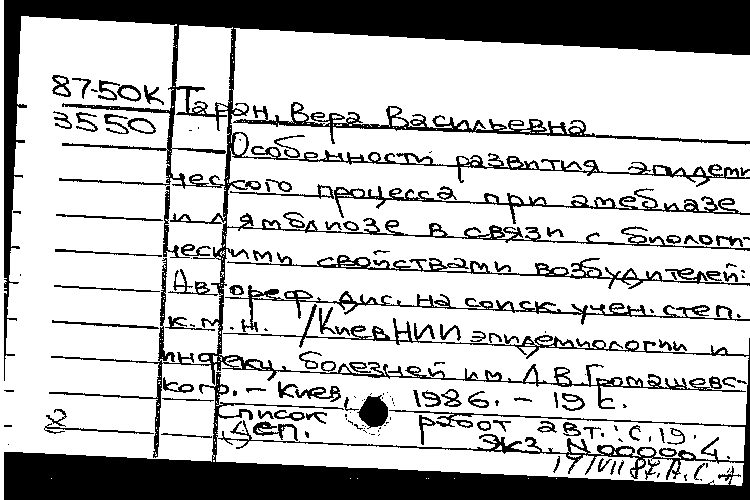 87-50К Таран, Вера Васильевна.
3550
Особенности развития эпидеми
ческого процесса при амебиазе
и лямблиозе в связи с биологи
ческими свойствами возбудителей:
Автореф. дис. на соиск. учен. степ.
к.м.н. /Киев НИИ эпидемиологии и
инфекц. болезней им. Л.В. Громашевс-
кого. - Киев, 1986. - 19 с.
Список работ авт.: с.19.
Деп. Экз. N 000004.
17/VII 87. А.С.